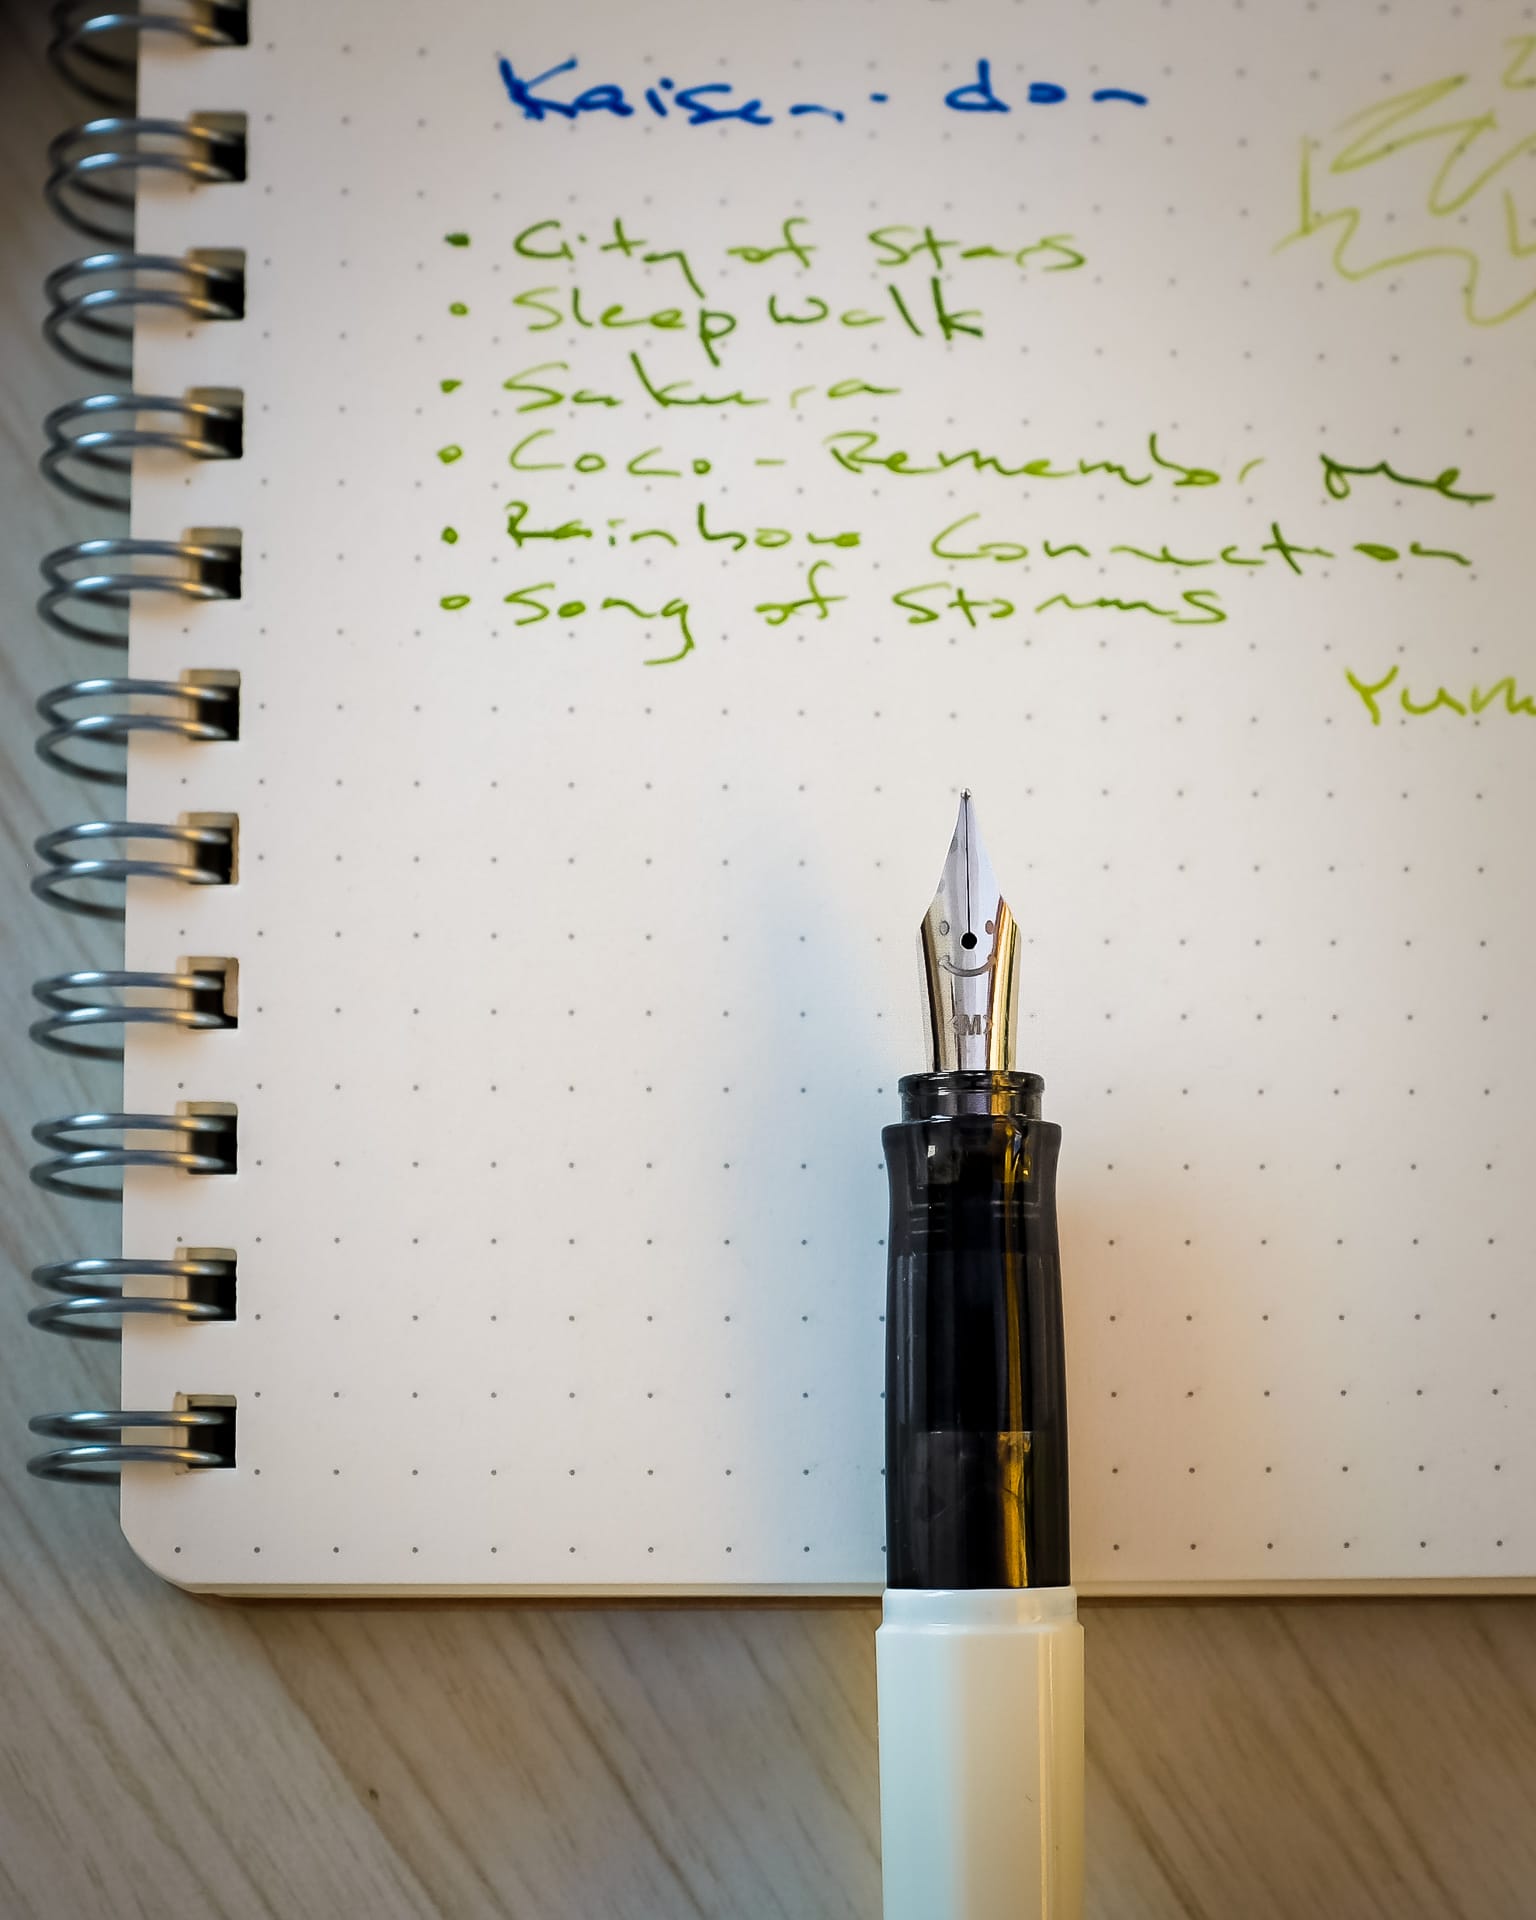 Kaisen-don
• City of Stars
• Sleep Walk
• Sakura
• Coco - Remember me
• Rainbow Connection
• Song of Storms
<M>